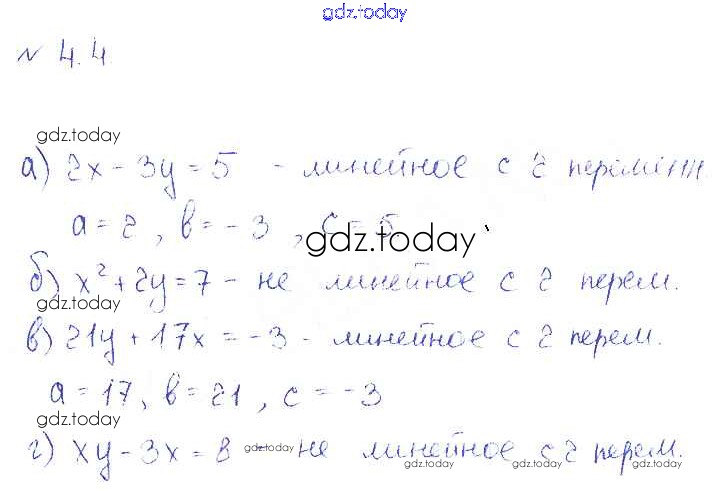 gdz.today
№ 4.4.
gdz.today
а) 2x - 3y = 5 - линейное с 2 переменн.
a = 2, в = - 3, c = 5.
gdz.today
б) x² + 2y = 7 - не линейное с 2 перем.
gdz.today
в) 21y + 17x = -3 - линейное с 2 перем.
a = 17, в = 21, c = -3
gdz.today
г) xy - 3x = 8 - не линейное с 2 перем.
gdz.today
gdz.today gdz.today gdz.today